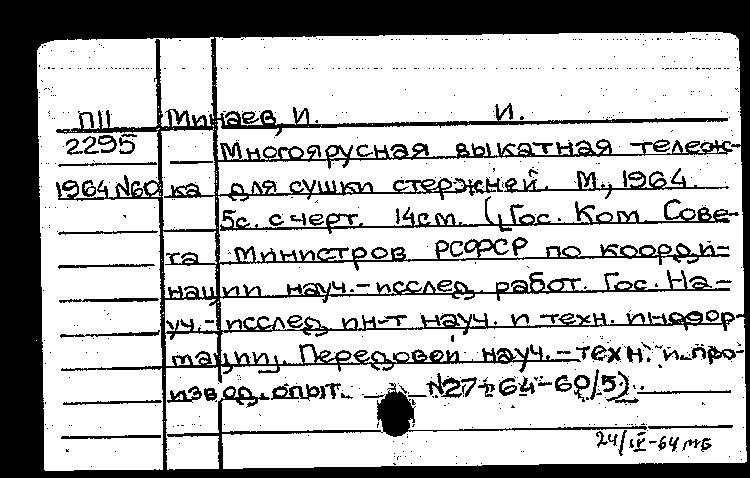 ПII Минаев, И. И.
2295 Многоярусная выкатная тележ-
1964 N60 ка для сушки стержней. М., 1964.
5с. с черт. 14см. (Гос. Ком. Сове-
та Министров РСФСР по коорди-
нации науч.-исслед. работ. Гос. На-
уч.-исслед. ин-т науч. и техн. инфор-
мации. Передовой науч.-техн. и про-
извод. опыт. N27-64-60/5).
24/IV-64 МБ